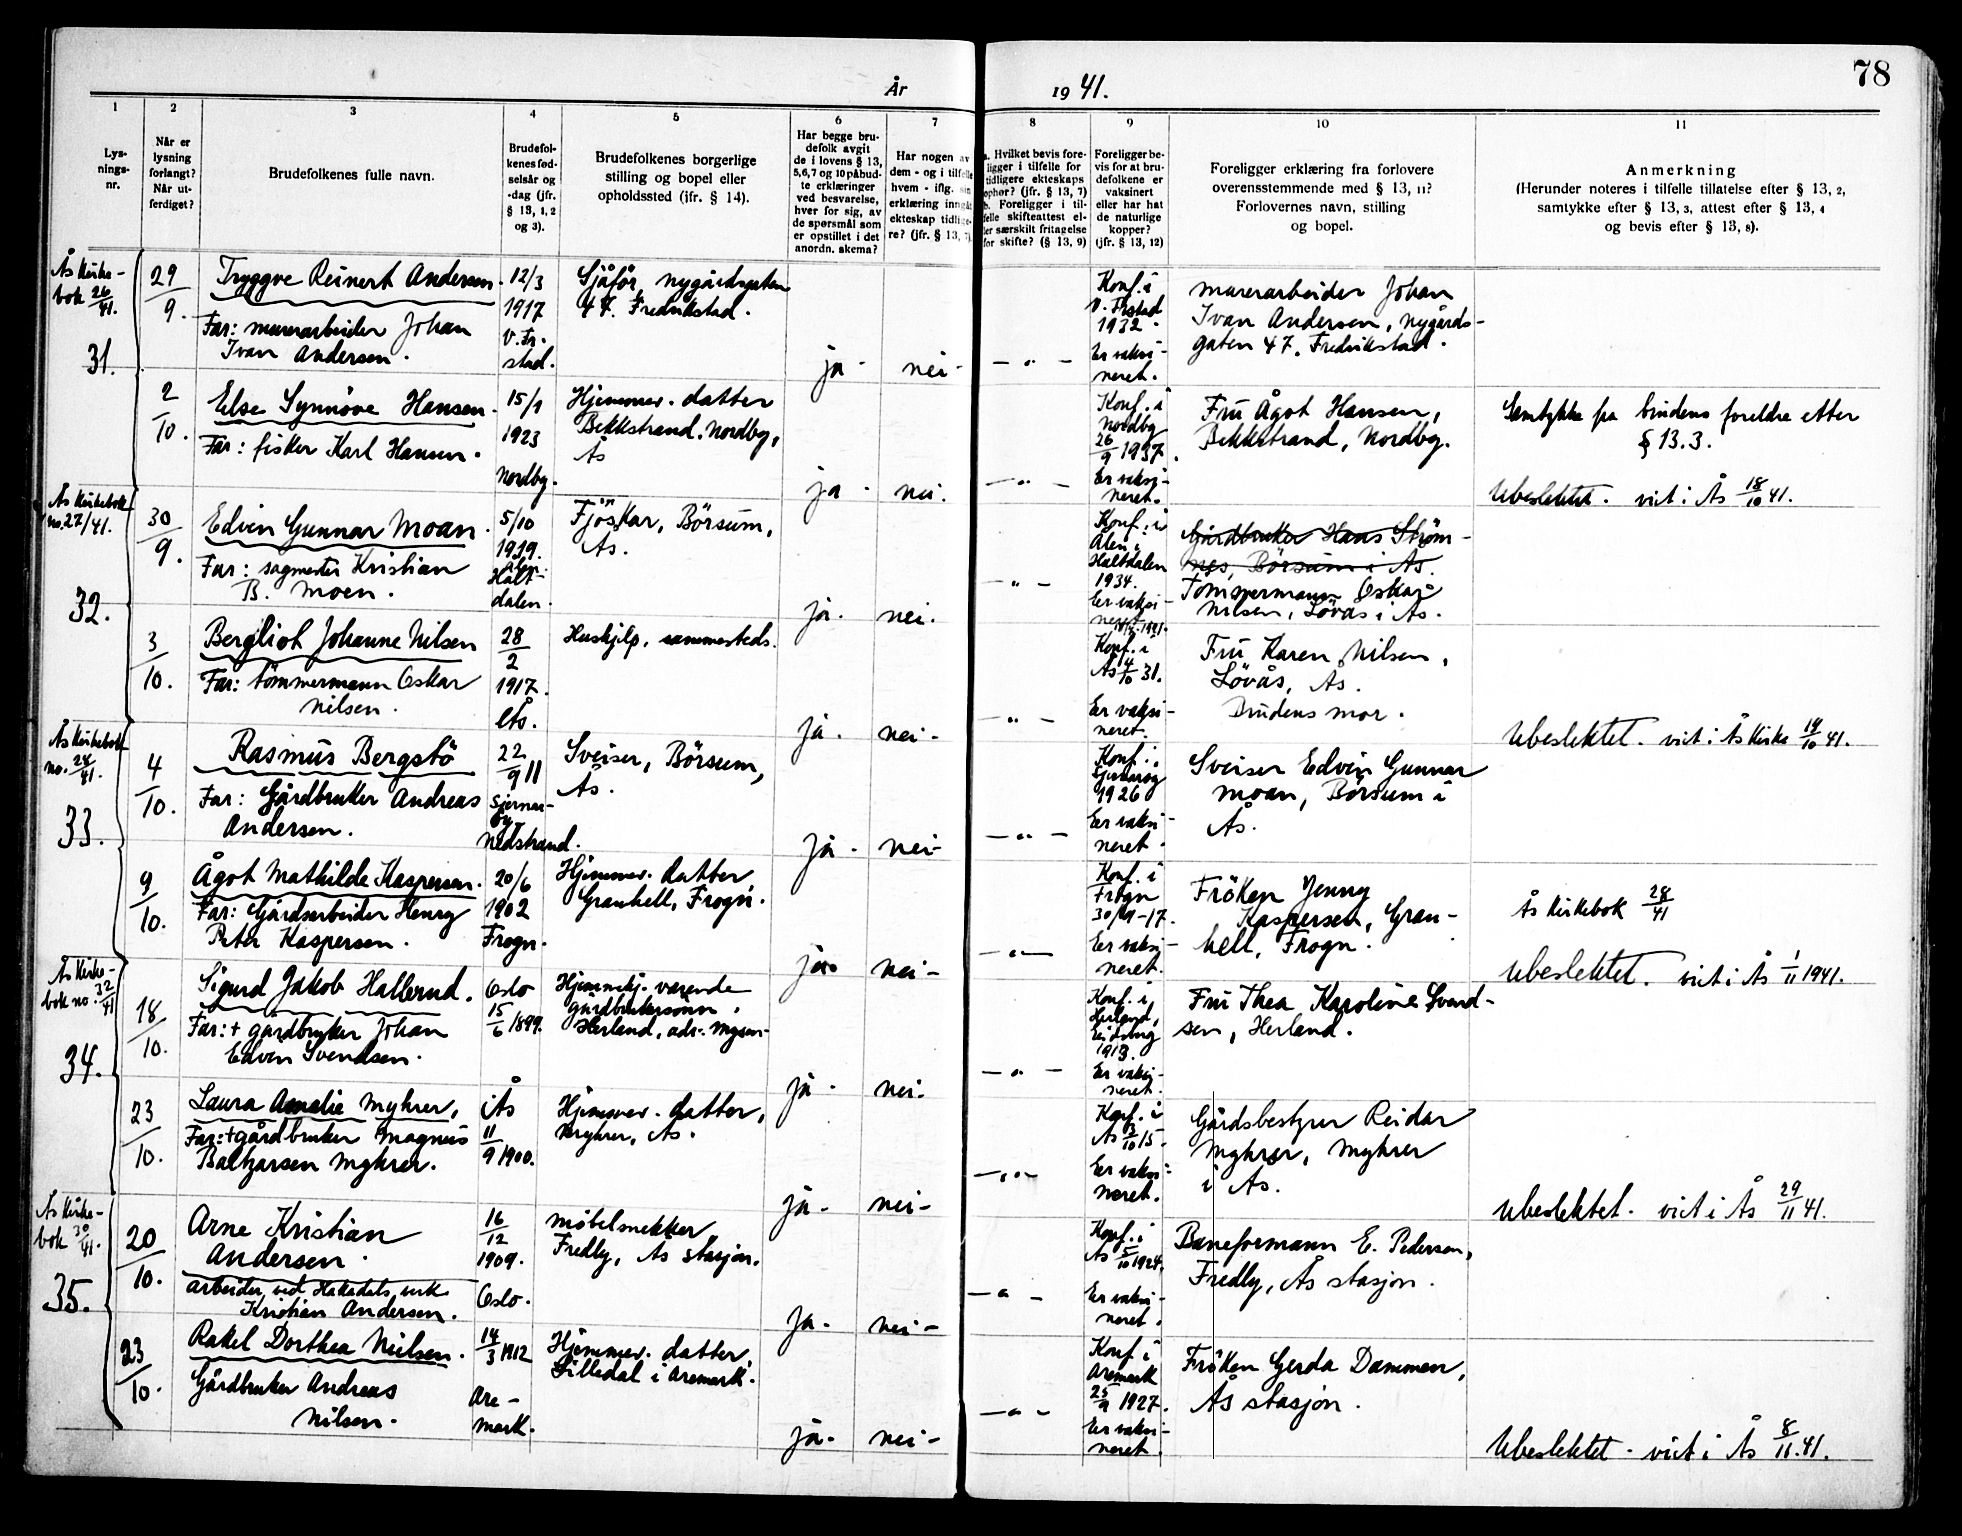 78
År 1941.
1 2 3 4 5 6 7 8 9 10 11
Lys-
nings-
nr.
Når er
lysning
forlangt?
Når ut-
ferdiget?
Brudefolkenes fulle navn.
Brudefol-
kenes fød-
selsår og
-dag (jfr.
§ 13, 1, 2
og 3).
Brudefolkenes borgerlige
stilling og bopel eller
opholdssted (jfr. § 14).
Har begge bru-
defolk avgit
de i lovens § 13,
5, 6, 7 og 10 påbud-
te erklæringer
ved besvarelse,
hver for sig, av
de spørsmål som
er opstillet i det
anordn. skema?
Har nogen av
dem - og i tilfelle
hvem - iflg. sin
erklæring inngått
ekteskap tidlige-
re? (jfr. § 13, 7).
a. Hvilket bevis fore-
ligger i tilfelle for
tidligere ekteskaps
ophør? (jfr. § 13, 7)
b. Foreligger i til-
felle skifteattest el-
ler særskilt fritagelse
for skifte? (§ 13, 9)
Foreligger be-
vis for at bru-
defolkene er
vaksinert
eller har hat
de naturlige
kopper?
(jfr. § 13, 12)
Foreligger erklæring fra forlovere
overensstemmende med § 13, 11?
Forlovernes navn, stilling
og bopel.
Anmerkning
(Herunder noteres i tilfelle tillatelse efter § 13, 2,
samtykke efter § 13, 3, attest efter § 13, 4
og bevis efter § 13, 8).
Ås Kirke-
bok 26/41.
31.
29/9.
Tryggve Reinert Andersen.
Far: murerarbeider Johan
Ivan Andersen.
12/3
1917
V. Fr.
stad.
Sjåfør, Nygårdsgaten
47. Fredrikstad.
ja -
nei -
— " —
Konf. i
V. Frstad
1932.
Er vaksi-
neret.
Murerarbeider Johan
Ivan Andersen, Nygårds-
gaten 47, Fredrikstad.
2/10.
Else Synnöve Hansen.
Far: fisker Karl Hansen.
15/1
1923
Nordby.
Hjemmev. datter
Bekkstrand. Nordby,
Ås
ja -
nei.
— " —
Konf. i
Nordby
26/9 1937.
Er vaksi-
neret.
Fru Ågot Hansen,
Bekkstrand, Nordby.
Samtykke fra brudens foreldre etter
§ 13.3.
Ubeslektet. viet i Ås 18/10 41.
Ås Kirkebok
no. 27/41.
32.
30/9.
Edvin Gunnar Moan.
Far: sagmester Kristian
B. Moen.
5/10
1919.
Ålen.
Halt-
dalen.
Fjöskar, Börsum,
Ås.
ja.
nei.
— " —
Konf. i
Ålen i
Haltdalen
1934.
Er vaksi-
neret
Gårdbruker Hans Ström-
nes, Börsum i Ås.
Tömmermann Oskar
Nilsen, Lövås i Ås.
3/10.
Bergliot Johanne Nilsen
Far: tömmermann Oskar
Nilsen.
28/2
1917.
Ås.
Hushjelp, sammesteds.
ja.
nei -
— " —
Konf. i
Ås 4/10 31.
Er vaksi-
neret.
Fru Karen Nilsen,
Lövås, Ås.
Brudens mor.
Ubeslektet. viet i Ås Kirke 19/10 41.
Ås Kirkebok
no. 28/41.
33.
4/10.
Rasmus Bergstö
Far: Gårdbruker Andreas
Andersen.
22/9 11
Sjernar-
öy
Nedstrand.
Sveiser, Börsum,
Ås.
ja -
nei -
— " —
Konf. i
Sjernaröy
1926
Er vaksi-
neret.
Sveiser Edvin Gunnar
Moan, Börsum i
Ås.
9/10.
Ågot Mathilde Kaspersen.
Far: Gårdsarbeider Henry
Peter Kaspersen.
20/6
1902
Frogn.
Hjemmev. datter
Granhell, Frogn.
ja.
nei -
— " —
Konf. i
Frogn
30/9-17.
Er vaksi-
neret.
Fröken Jenny
Kaspersen, Gran-
hell, Frogn.
Ås Kirkebok 28/41
Ubeslektet. viet i Ås 1/11 1941.
Ås Kirke-
bok no. 32/41
34.
18/10.
Sigurd Jakob Hallerud.
Far: + gårdbruker Johan
Edvin Svendsen.
Oslo
15/6 1899.
Hjemmehj. værende
gårdbrukersönn.
Herland, adr. Mysen.
ja -
nei.
— " —
Konf. i
Herland,
Eidsberg
1913.
Er vaksi-
neret.
Fru Thea Karoline Svend-
sen, Herland.
23/10.
Laura Amalie Myhrer,
Far: + gårdbruker Magnus
Baltzarsen Myhrer.
i Ås
11/9 1900.
Hjemmev. datter,
Myhrer, Ås.
ja -
nei -
— " —
Konf. i
Ås 3/10 15.
Er vaksi-
neret.
Gårdsbestyrer Reidar
Myhrer, Myhrer
i Ås.
Ubeslektet. viet i Ås 29/11 41.
Ås Kirke-
bok 30/41.
35.
20/10.
Arne Kristian
Andersen.
arbeider ved Hakadals verk
Kristian Andersen.
16/12
1909.
Oslo.
Möbelsnekker,
Fredly, Ås stasjon.
ja -
nei -
— " —
Konf. i
Ås 5/10 1924.
Er vaksi-
neret.
Baneformann E. Pedersen,
Fredly, Ås stasjon.
23/10.
Rakel Dorthea Nielsen.
Gårdbruker Andreas
Nilsen.
14/3 1912
Are-
mark.
Hjemmev. datter,
Lilledal i Aremark.
ja -
nei -
— " —
Konf. i
Aremark
25/9 1927.
Er vaksi-
neret.
Fröken Gerda Dammen,
Ås stasjon.
Ubeslektet - viet i Ås 8/11. 41.